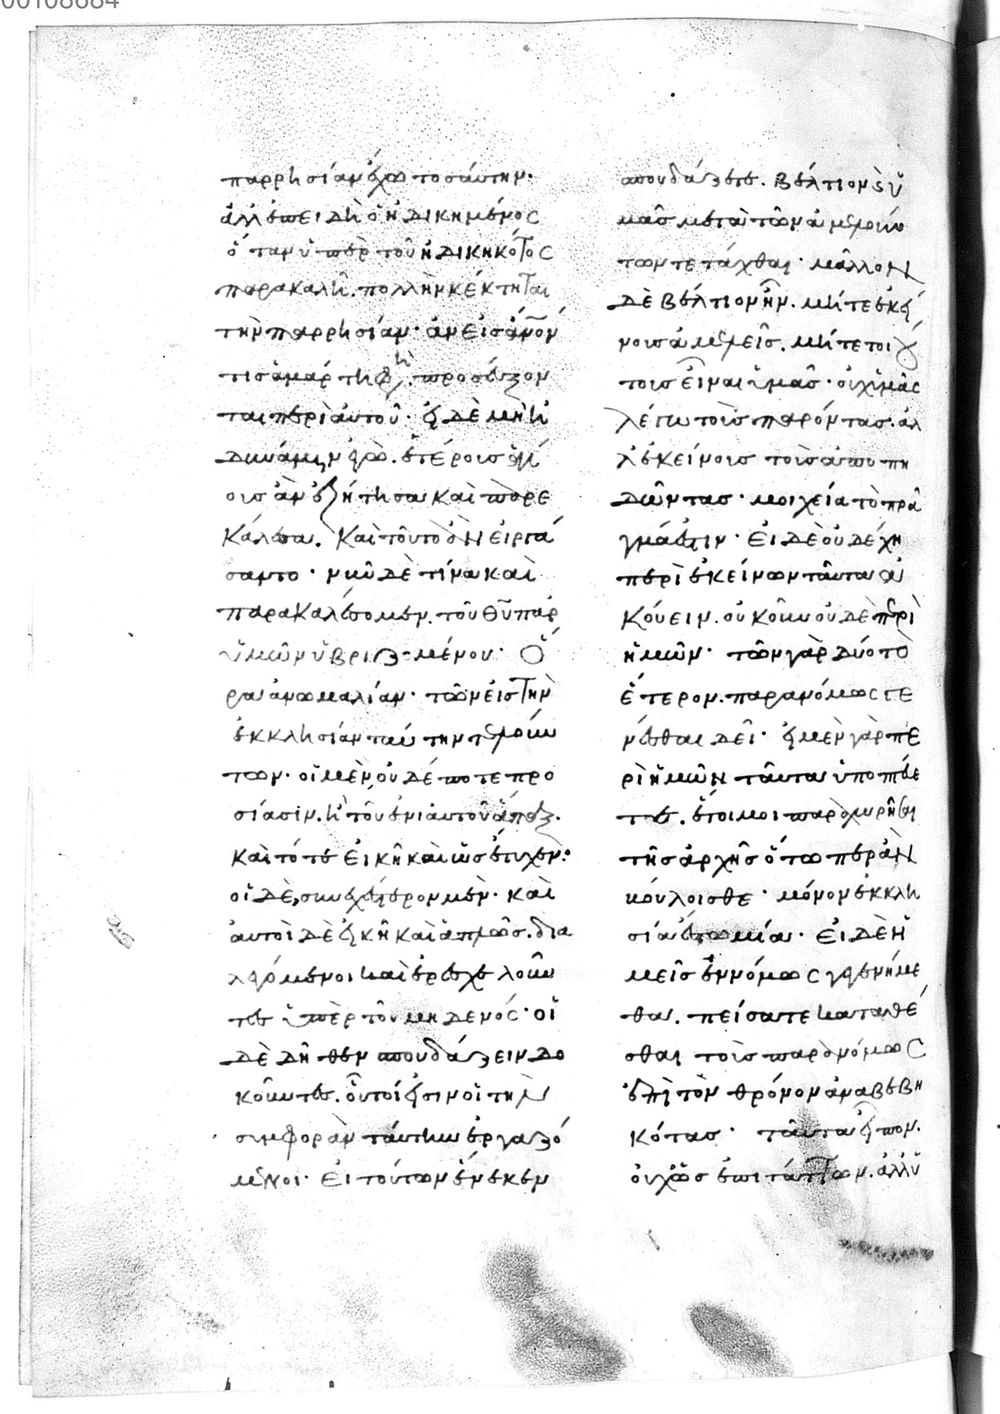 00108684
παρρησίαν ἔχω τοσαύτην·
ἀλλ' ἐπειδὴ ὁ ἠδικημένος
ὅταν ὑπὲρ τοῦ ἠδικηκότος
παρακαλῆ. πολλὴν κέκτηται
τὴν παρρησίαν· ἂν εἰς ἄνον
τὶς ἁμάρτη φη. προσεύξον
ται περὶ αὐτοῦ· εἰ δὲ μὴ ἡ
δυνάμην ἐγὼ. ἑτέροις ἂν
οις ἂν ἐζήτησα καὶ παρε
κάλεσα. καὶ τοῦτο ὃν εἰργά
σαντο· νῦν δὲ τίνα καὶ
παρακαλέσομεν. τοῦ θυ παρ
ὑμῶν ὑβριζομένου· Ὅ
ρα ἀνωμαλίαν· τῶν εἰς τὴν
ἐκκλησίαν ταύτην τελούν
των· οἱ μὲν οὐδέποτε προ
σίασιν. ἢ τοῦ ἐνιαυτοῦ ἅπαξ.
καὶ τότε εἰκῆ καὶ ὡς ἔτυχεν·
οἱ δὲ, συνεχέστερον μὲν· καὶ
αὐτοὶ δὲ εἰκῆ καὶ ἁπλῶς. δια
λεγόμενοι καὶ ἐρεσχελοῦν
τες ὑπὲρ τοῦ μηδενός· οἱ
δὲ δῆθεν σπουδάζειν δο
κοῦντες. οὗτοί εἰσιν οἱ τὴν
συμφορὰν ταύτην ἐργαζό
μενοι· Εἰ τούτων ἕνεκεν
σπουδάζετε. βέλτιον ἦν ὑ
μᾶς μετὰ τῶν ἀμελούν
των τετάχθαι· μᾶλλον
δὲ βέλτιον ἦν. μήτε ἐκεί
νους ἀμελεῖς. μήτε τοιού
τους εἶναι ὑμᾶς· οὐχ ὑμᾶς
λέγω τοὺς παρόντας. ἀλ
λ' ἐκείνους τοὺς ἀποπη
δῶντας· μοιχεία τὸ πρᾶ
γμά ἐστιν· Εἰ δὲ οὐ δέχη
περὶ ἐκείνων ταῦτα ἀ
κούειν. οὐκοῦν οὐδὲ περὶ
ἡμῶν· τῶν γὰρ δύο τὸ
ἕτερον. παρανόμως γε
νέσθαι δεῖ· εἰ μὲν γὰρ πε
ρὶ ἡμῶν ταῦτα ὑποπτεύε
τε. ἕτοιμοι παραχωρῆσαι
τῆς ἀρχῆς ὅτω περ ἂν
βούλοισθε· μόνον ἐκκλη
σία ἔστω μία· Εἰ δὲ ἡ
μεῖς ἐννόμως γεγενήμε
θα. πείσατε καταθέ
σθαι τοὺς παρανόμως
ἐπὶ τὸν θρόνον ἀναβεβη
κότας· ταῦτα εἶπον.
οὐχ ὡς ἐπιτάττων. ἀλλ' ὑ